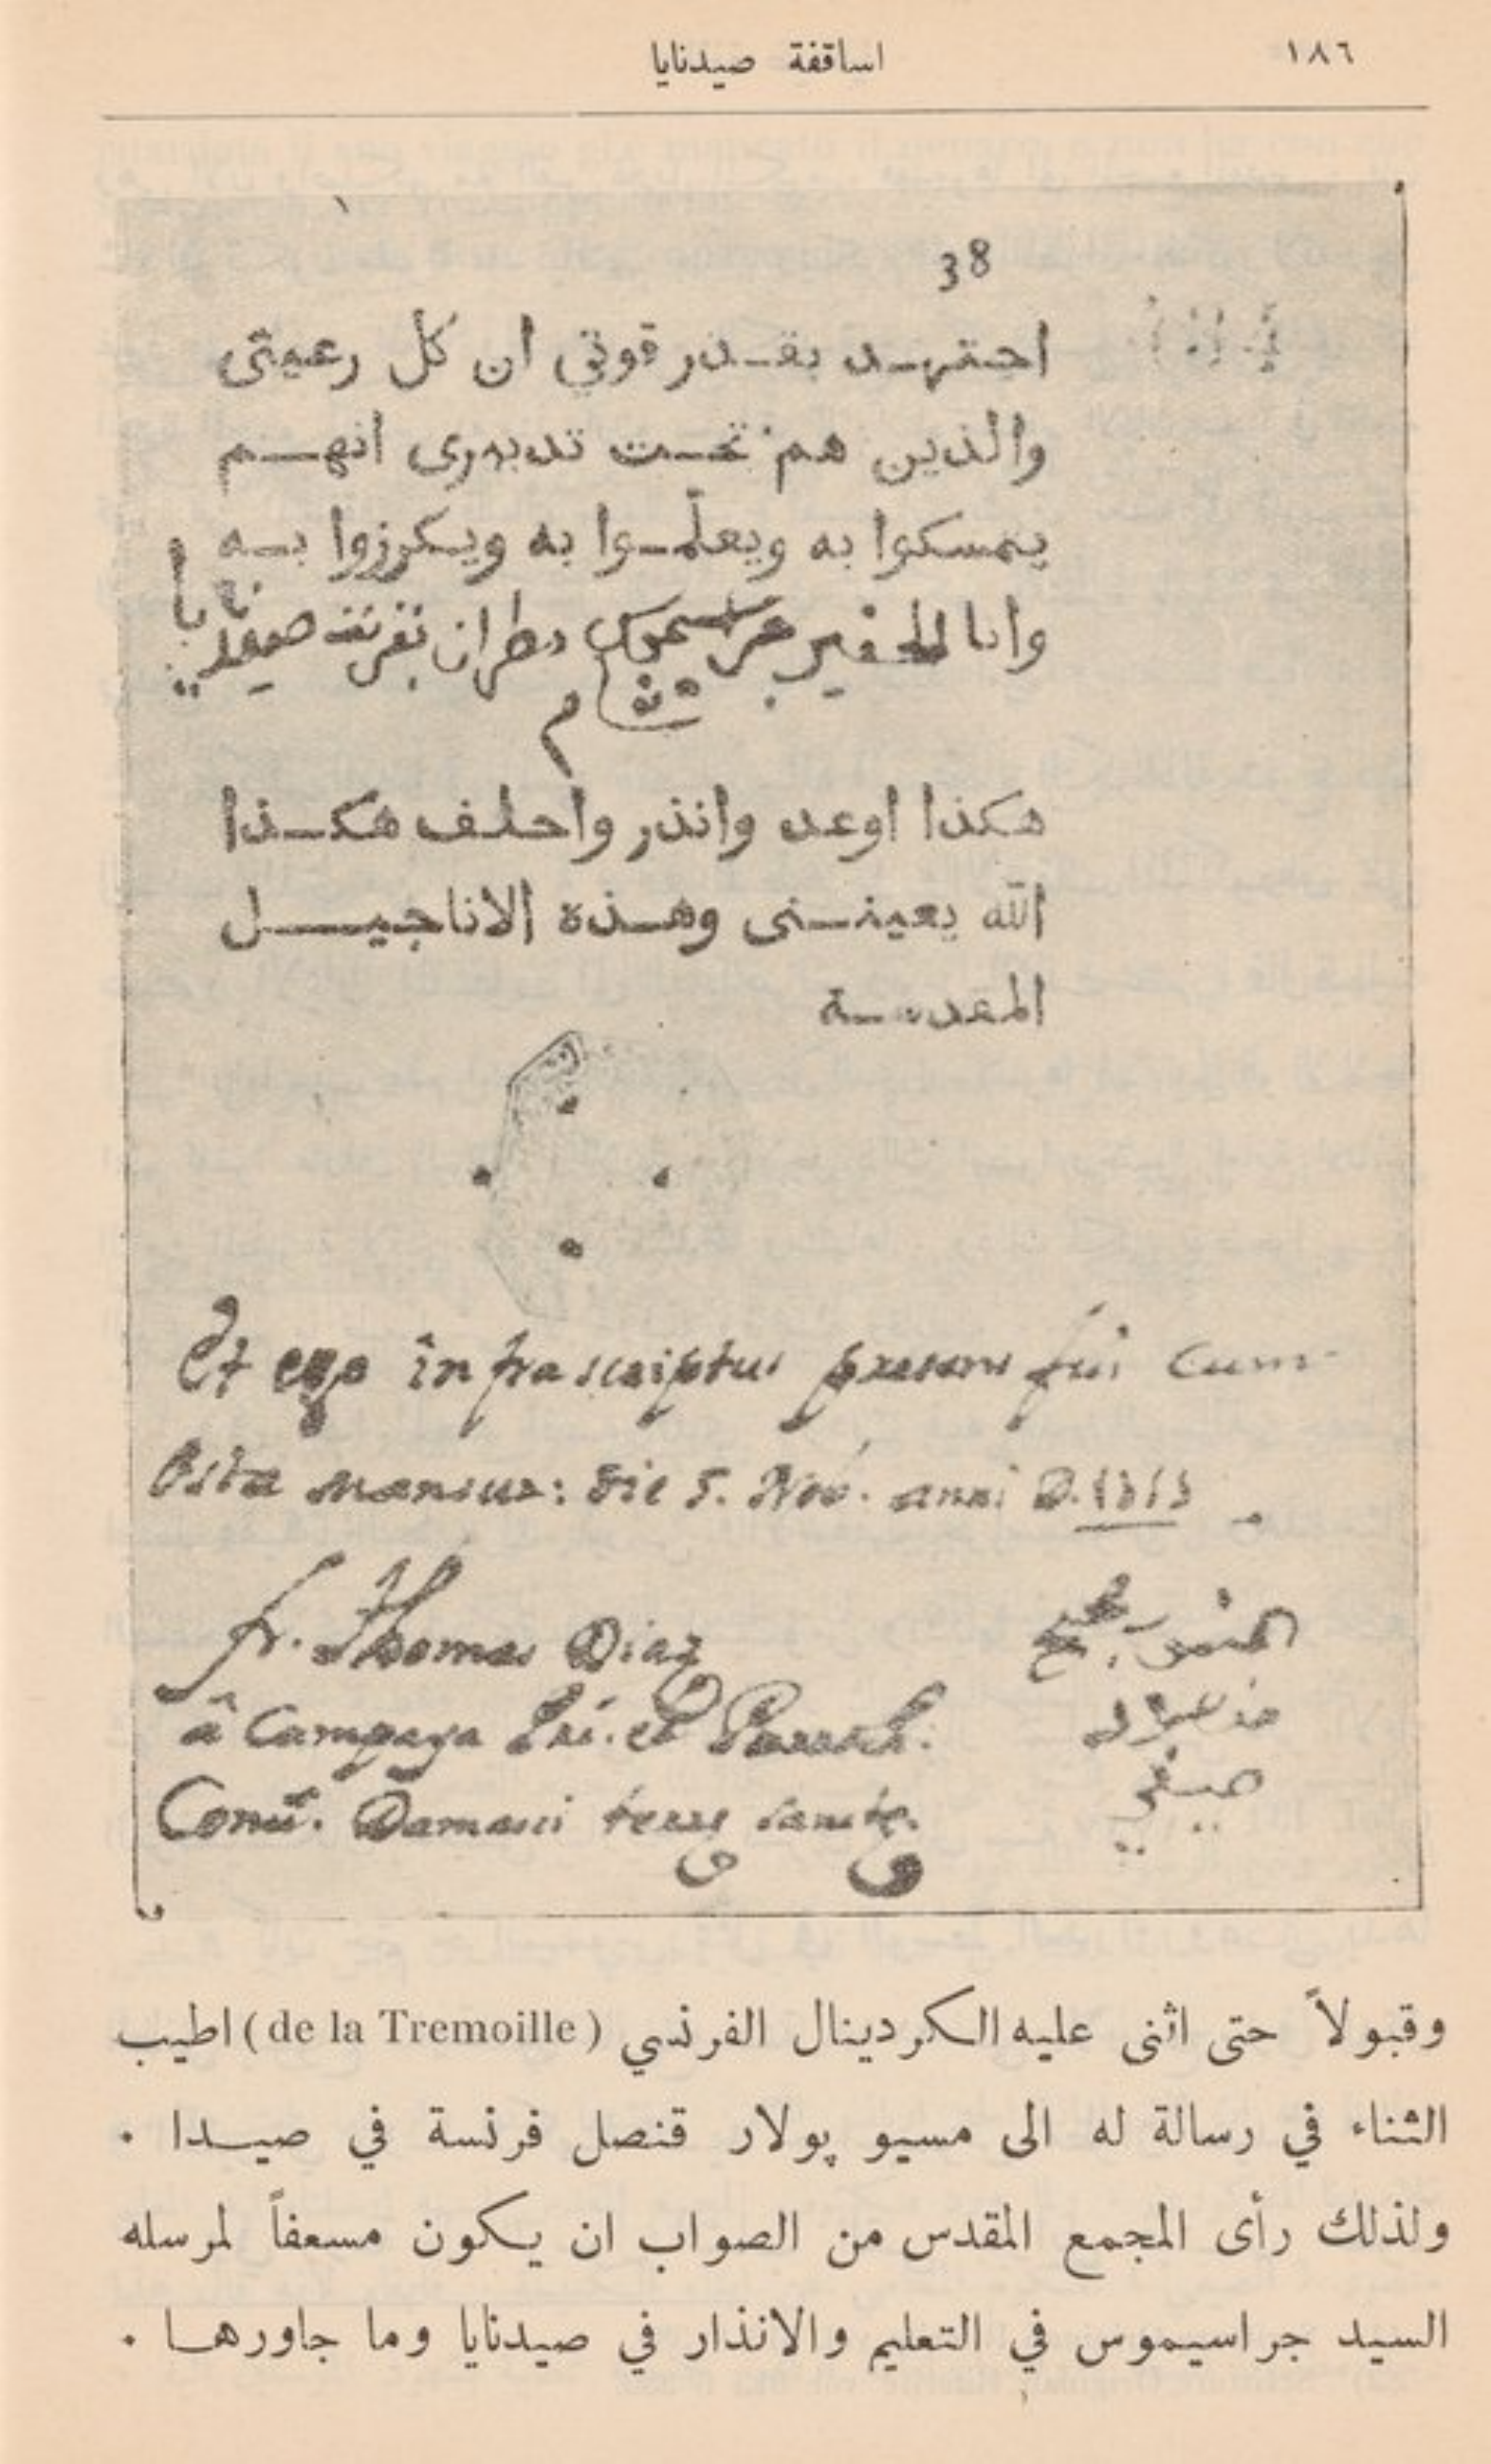 ١٨٦
اساقفة صيدنايا
38
اجتهد بقدر قوتي ان كل رعيتى
والذين هم تحت تدبيرى انهم
يمسكوا به ويعلّموا به ويكرزوا به
وانا الحقير مطران
هكذا اوعد وانذر واحلف هكذا
الله يعيننى وهذه الاناجيل
المقدسة
Et ego infrascriptus presens fui cum
die 5. Nov. anni D.
Fr. Thomas Diaz
â Campaya et
Damasci terre sancte.
وقبولاً حتى اثنى عليه الكردينال الفرنسي (de la Tremoille) اطيب
الثناء في رسالة له الى مسيو پولار قنصل فرنسة في صيدا .
ولذلك رأى المجمع المقدس من الصواب ان يكون مسعفاً لمرسله
السيد جراسيموس في التعليم والانذار في صيدنايا وما جاورها .